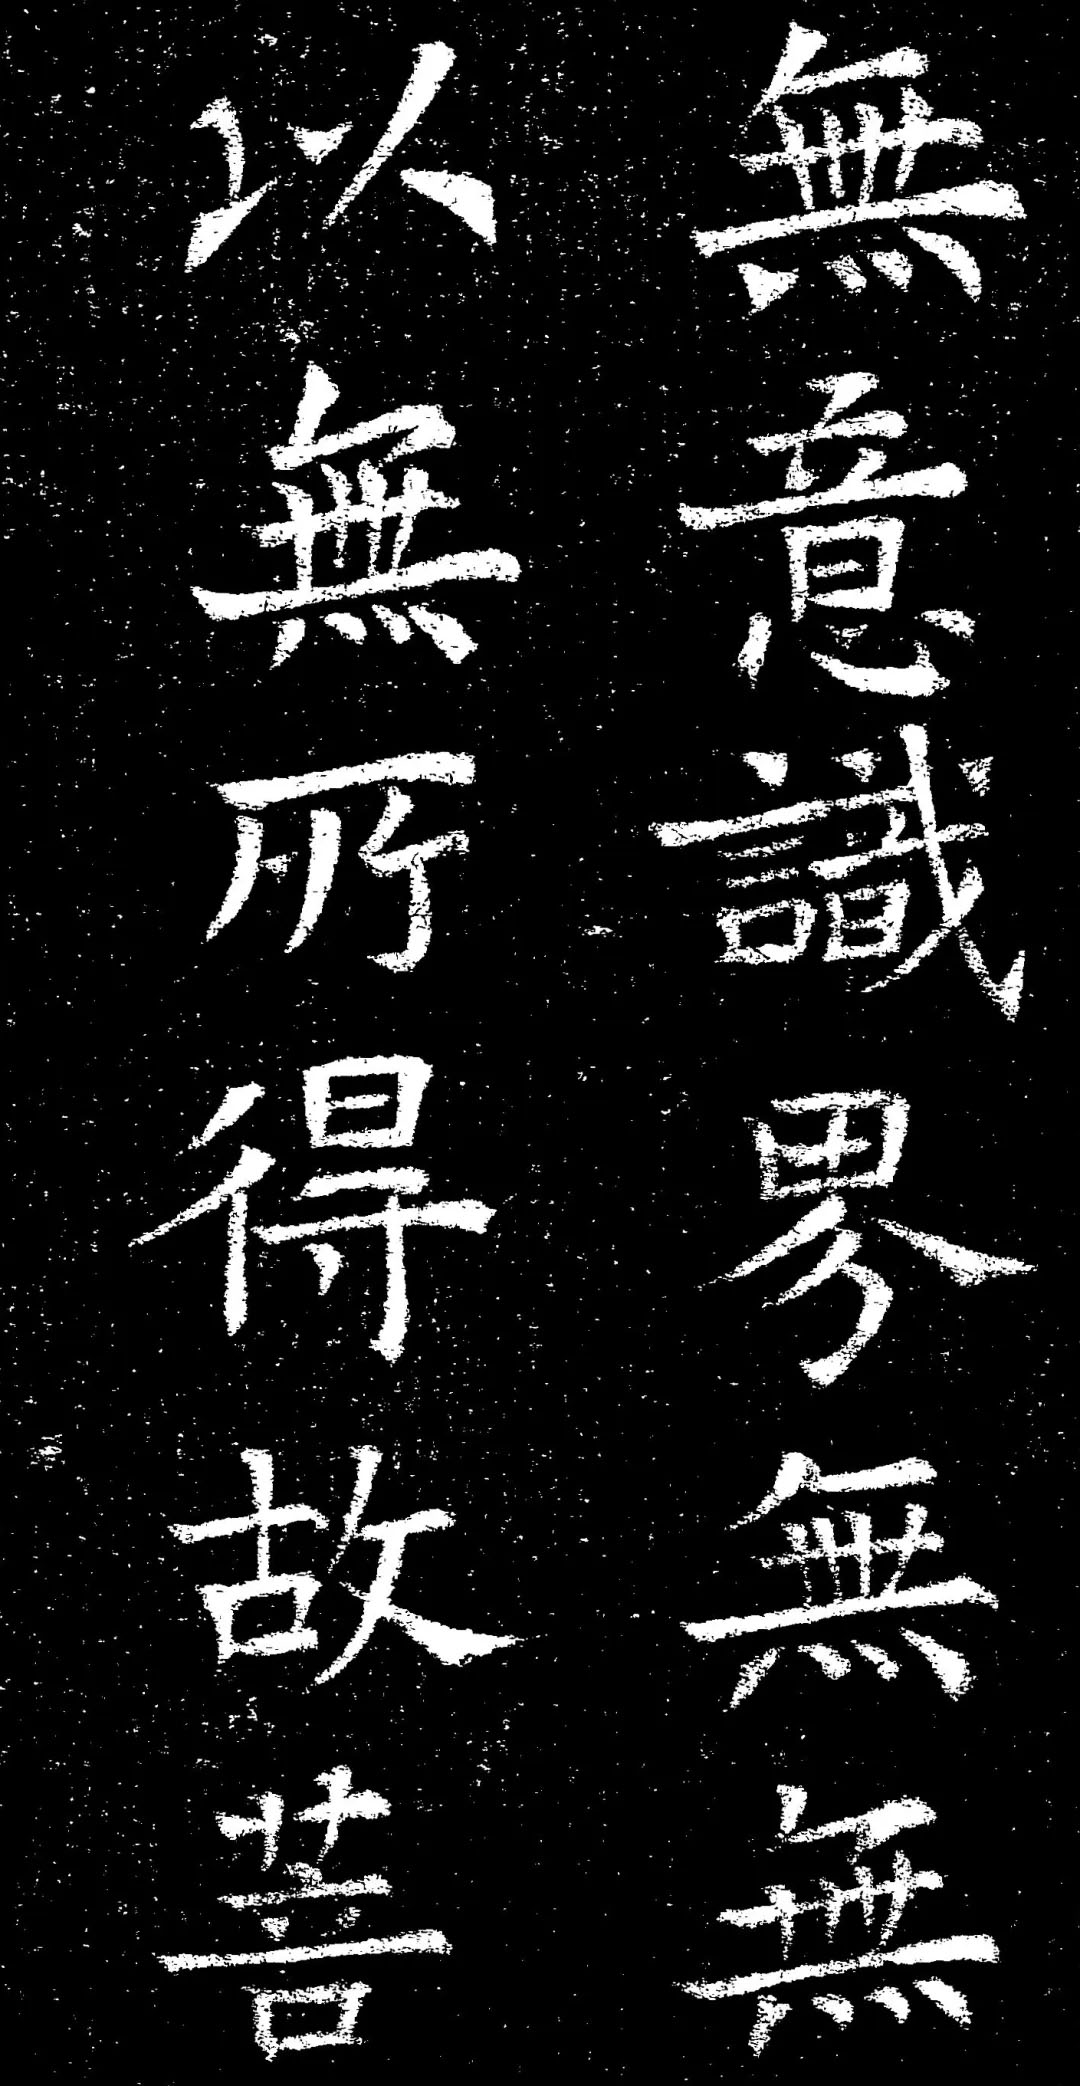 無意識界無無
以無所得故菩